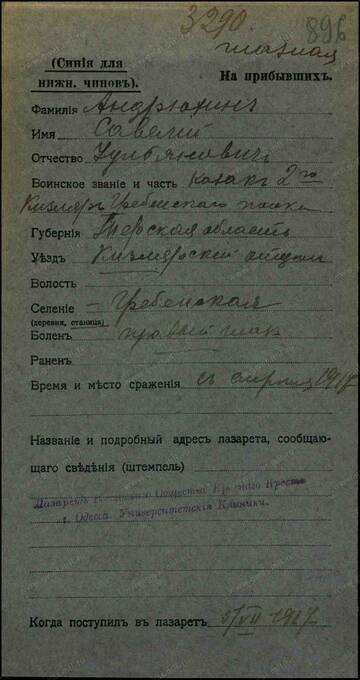 3290.
896
глазная
(Синія для
нижн. чиновъ).
На прибывшихъ.
Фамилія Андрюхинъ
Имя Савелий
Отчество Ульяновичъ
Воинское званіе и часть казакъ 2го
Кизляр Гребенского полка
Губернія Терская область
Уѣздъ Кизлярский отдѣл
Волость
Селеніе – Гребенская
(деревня, станица)
Боленъ правый глаз
Раненъ
Время и мѣсто сраженія съ 1917
Названіе и подробный адресъ лазарета, сообщаю-
щаго свѣдѣнія (штемпель)
Лазаретъ Общества Краснаго Креста
г. Одесса. Университетскія Клиники.
Когда поступилъ въ лазаретъ 5/VII 1917